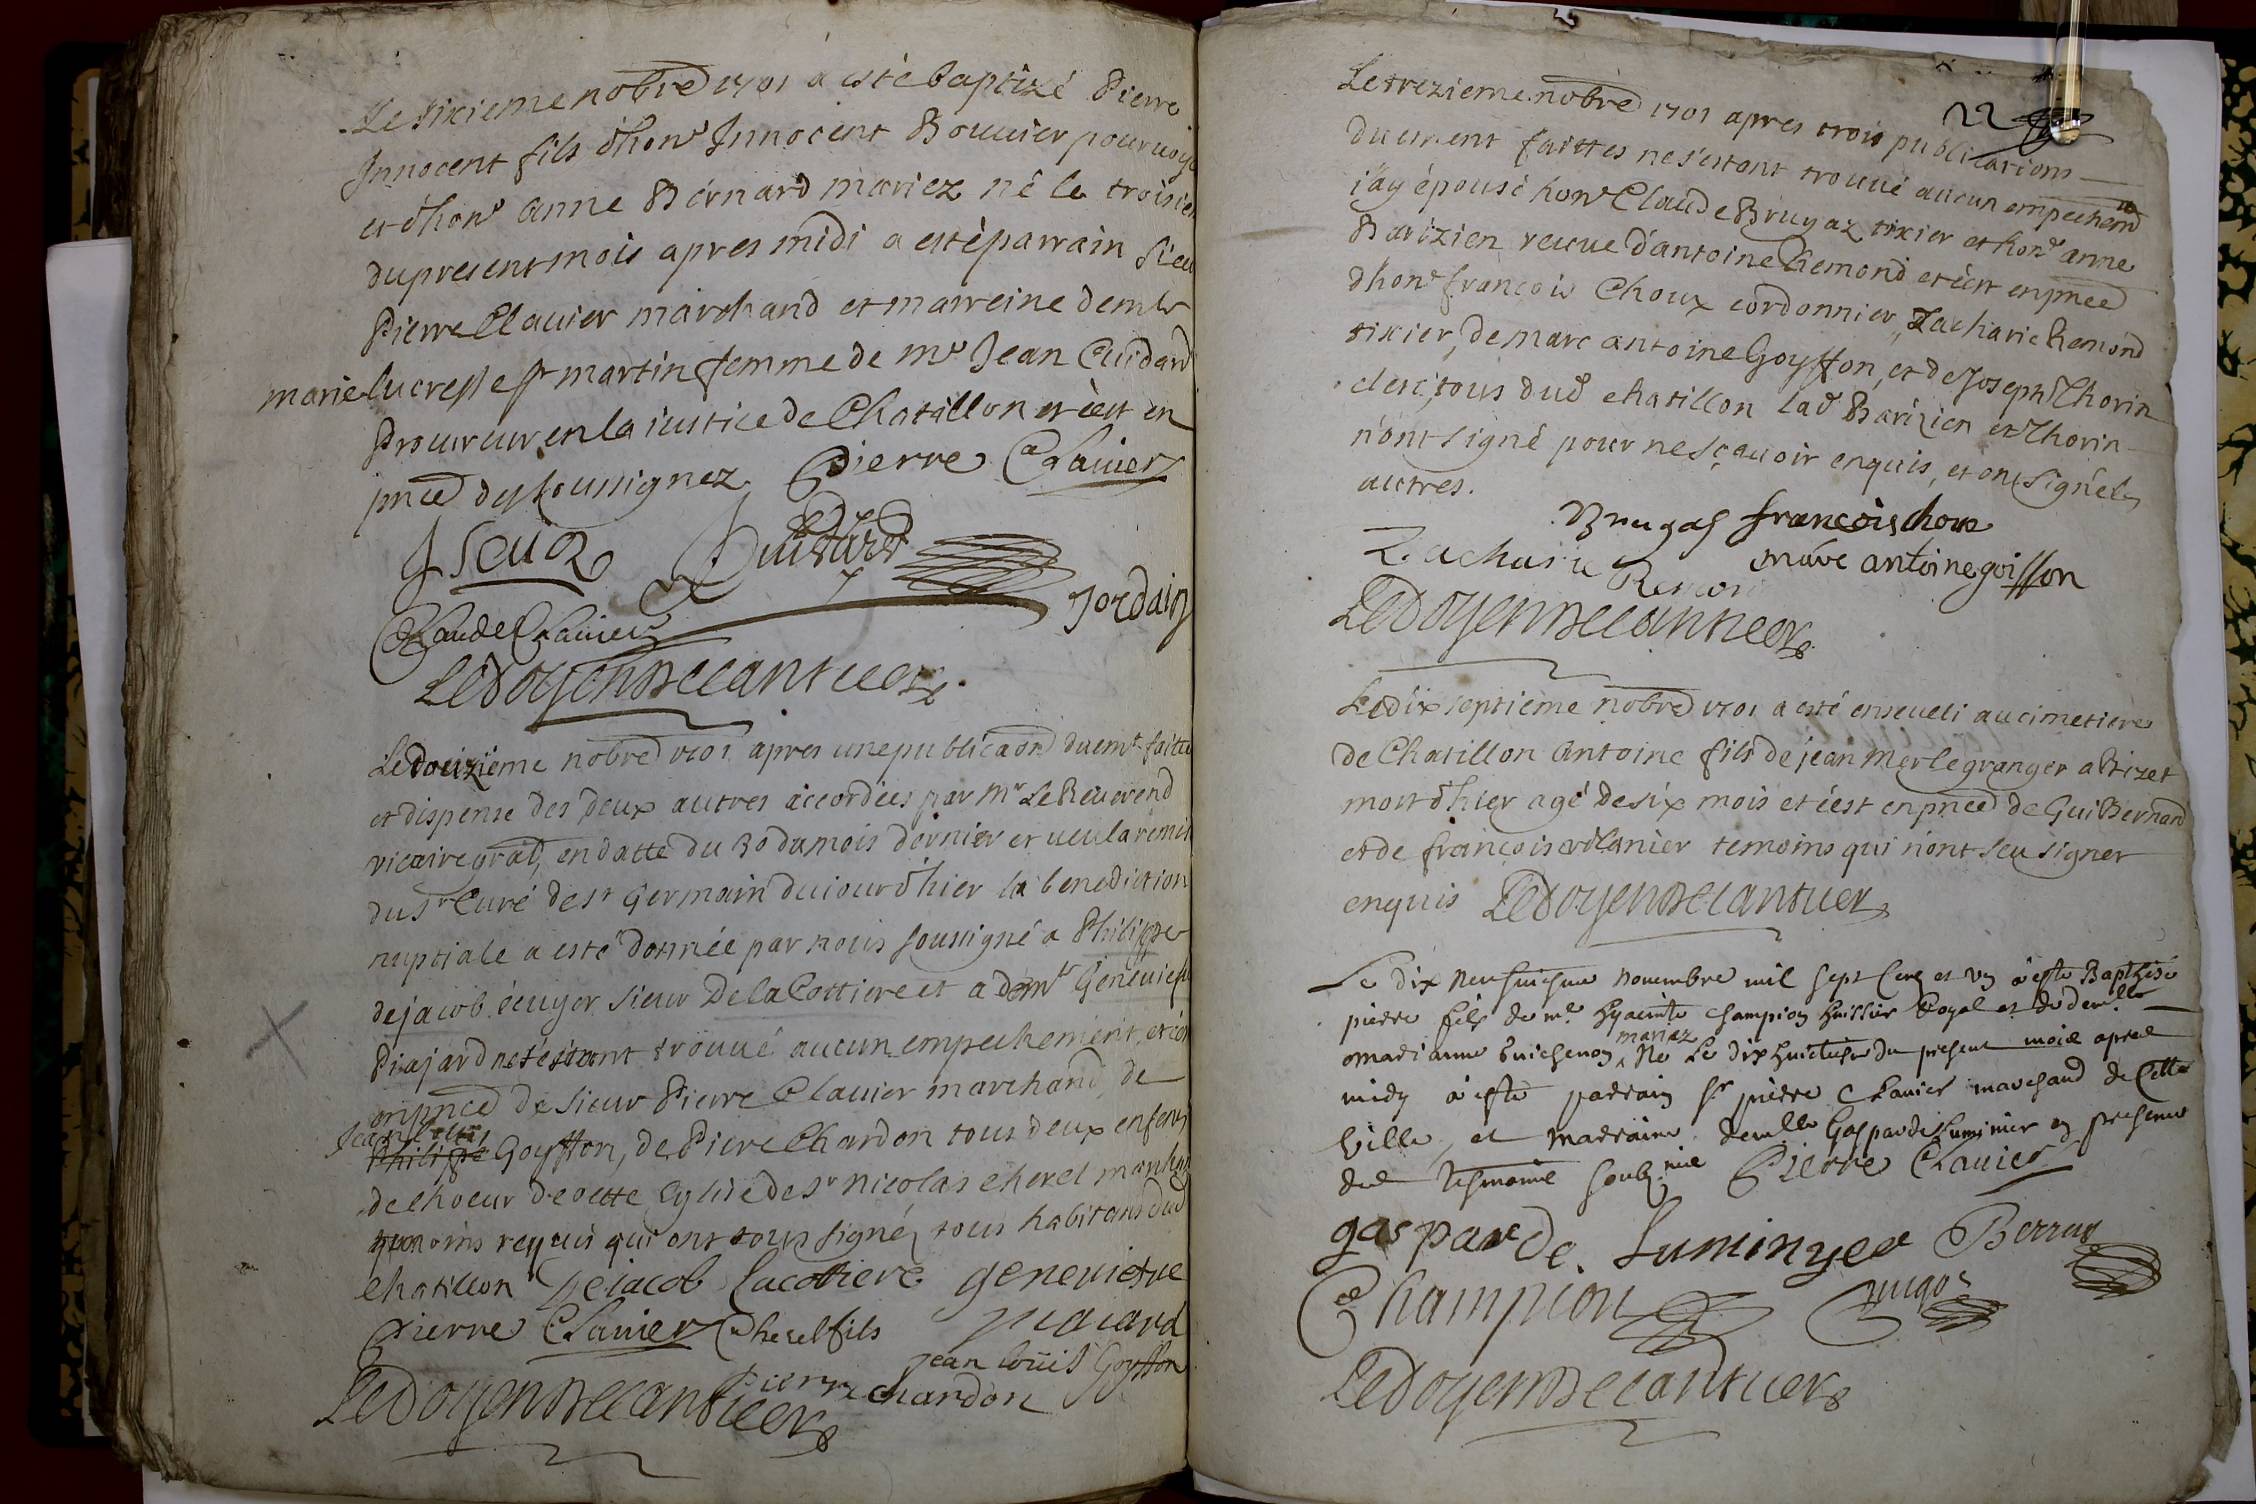 Le sixieme nobre 1701 a esté baptizé Pierre
Innocent fils d'hon. Innocent Bouuier pouruoye
et d'hon. anne Bernard mariez né le troisien
du present mois apres midi a esté parrain sieu
Pierre Clauier marchand et marreine demle
marie lucresse martin femme de mr Jean Guidard
Procureur en la iustice de Chatillon et c'est en
pnce des soussignez Pierre Clauier
Guidard
Jordain
Claude Clauier
Le Doyen Decantuer
Le douzieme nobre 1701 apres une publicaon duemt. faitte
et dispense des deux autres accordées par Mr Le Reuerend
vicaire gral, en datte du 30 du mois dernier et ueu la remise
du Sr Curé de St Germain du iourd'hier la benediction
nuptiale a esté donnée par nous soussigné a Philippe
dejacob ecuyer sieur De la Cottiere et a demle Geneuiefue
Piajard ne s'estant trouué aucun empechement, et c'est
en pnce de sieur Pierre Clauier marchand, de
Jean louis
Philippe Goyffon, de Pierre Chardon tous deux enfens
de choeur de cette Eglise de Sr Nicolas cherel marchand
temoins requis qui ont tous signé, tous habitans dud
chatillon Dejacob Lacottiere geneuiefue
Pierre Clauier Cherel fils piajard
jean louis Goyffon
Pierre chardon
Le Doyen Decantuer
22
Le trezieme nobre 1701 apres trois publications
duement faittes ne s'estant trouué aucun empechemt
j'ay épousé hon. Claude Brugaz tixier et hon. anne
Barizien veuue d'antoine Remond et c'est en pnce
d'hon. françois Choux cordonnier, Zacharie Remond
tixier, de marc antoine Goyffon, et de Joseph Thorin
clerc, tous dud chatillon lad Barizien et Thorin
n'ont signé pour ne sçauoir enquis, et ont signé les
autres.
Brugas françois choux
Zacharie Remon marc antoine goisson
Le Doyen Decantuer
Le dix septieme nobre 1701 a esté enseueli au cimetiere
de Chatillon antoine fils de jean Merle granger a Bizet
mort d'hier agé de six mois et c'est en pnce de Gui Bernard
et de françois temoins qui n'ont sceu signer
enquis Le Doyen Decantuer
Le dix neufuiesme nouembre mil sept Cent et Un à esté Baptisé
pierre fils de mr. hyacinte champion huissier Royal et de demlle
mariez
marianne buichenon né Le dixhuictiesme du present mois apres
midy à esté parrain sr pierre Clauier marchand de Cette
Ville, et marraine demlle Gasparde Luminier en presence
des tesmoins soubz.nés Pierre Clauier
gasparde. Luminyer Berrux
Champion
Le Doyen Decantuer